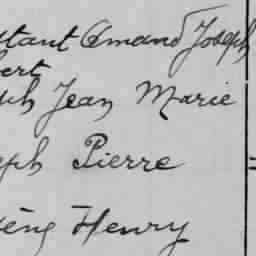 stant Amand Joseph
bert
eph Jean Marie
eph Pierre
gène Henry